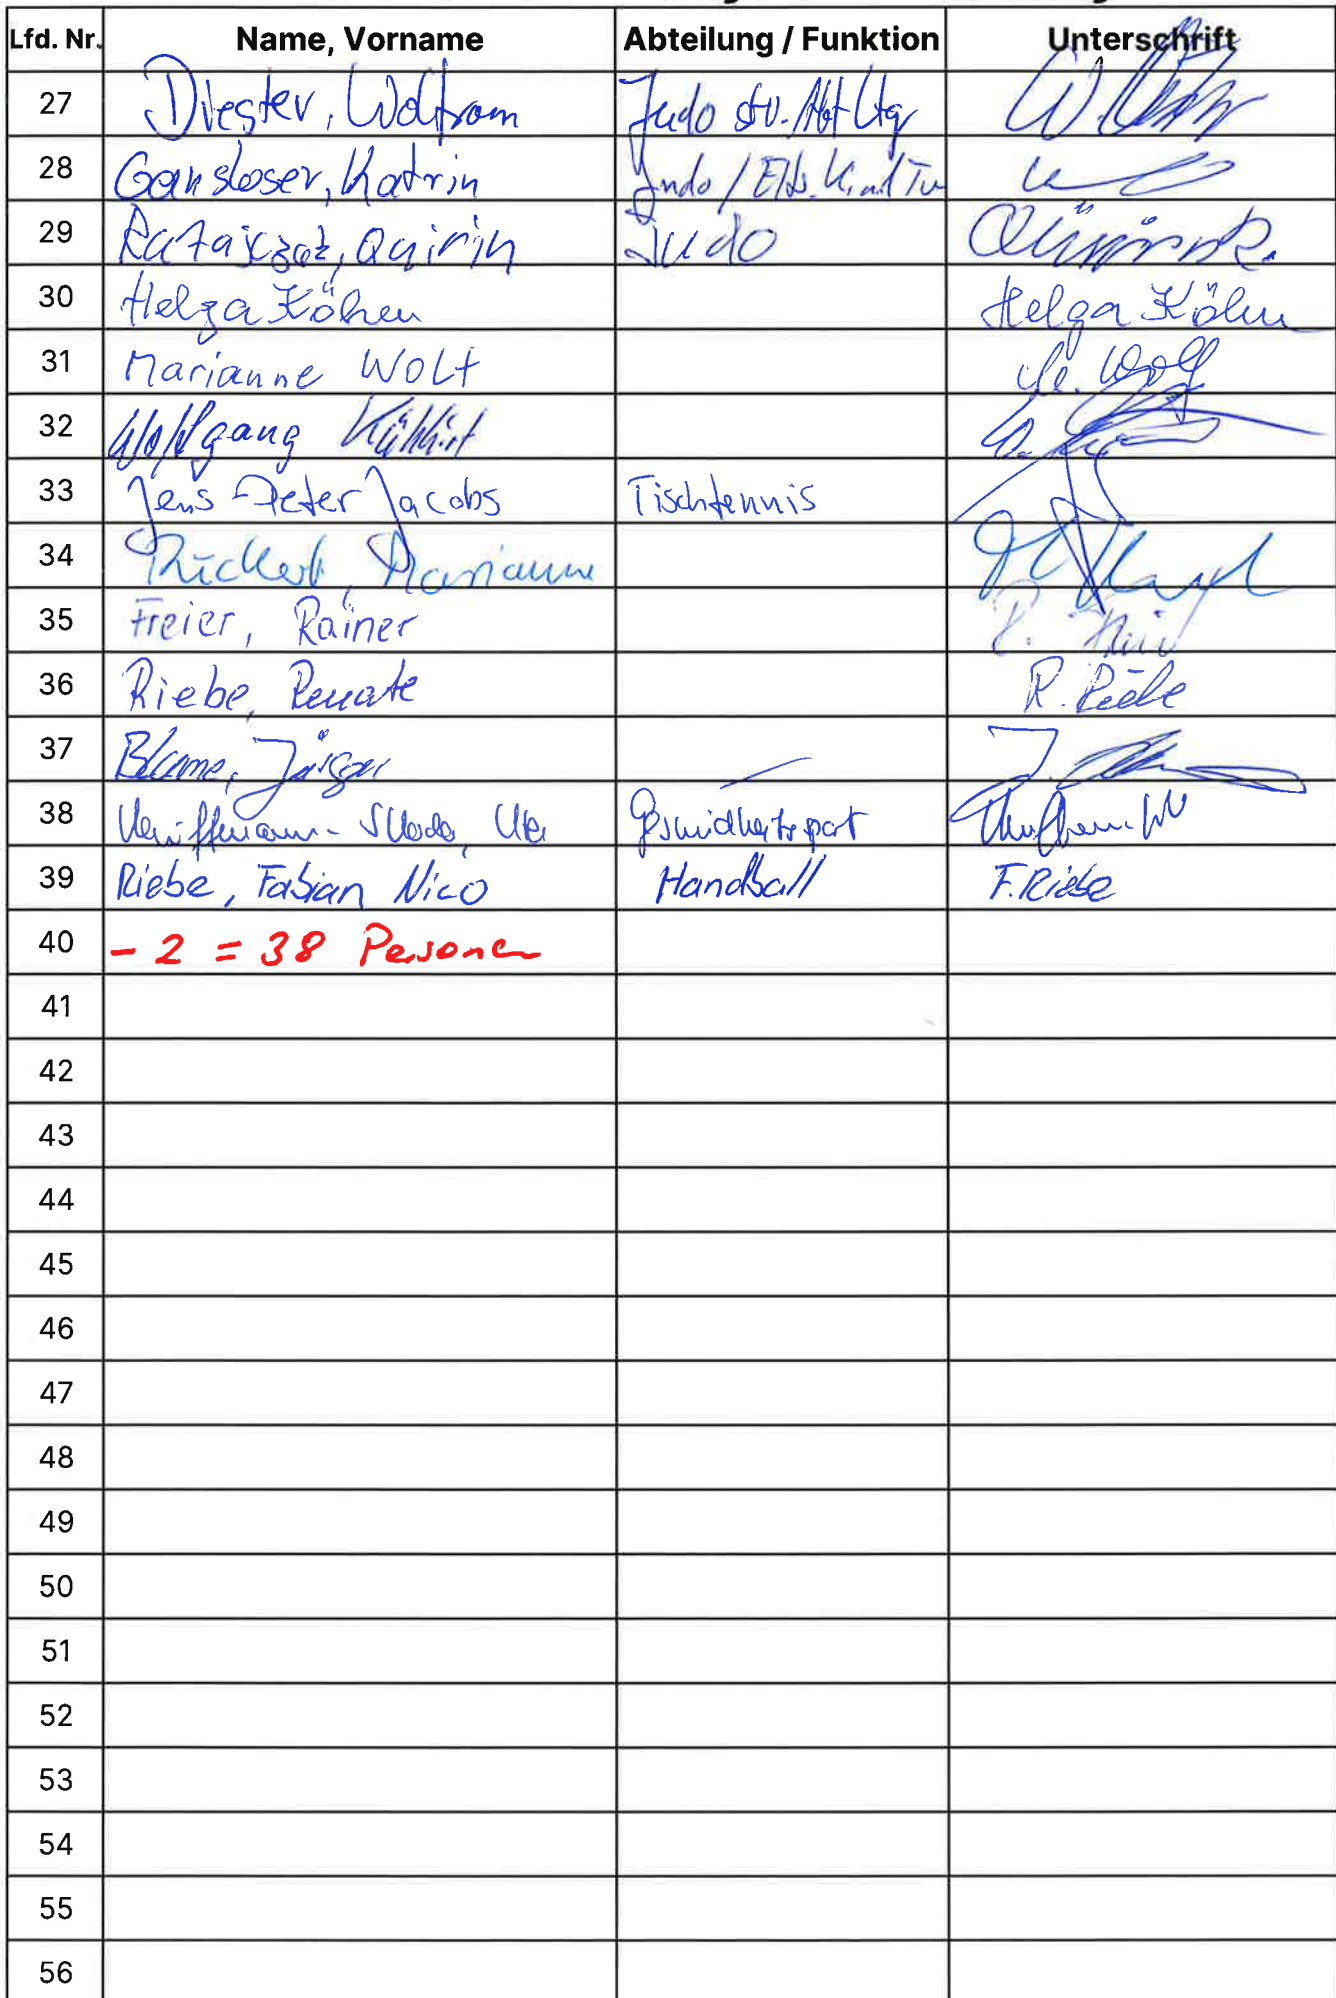 Lfd. Nr. Name, Vorname Abteilung / Funktion Unterschrift
27 Diester, Wolfram Judo stv. Abt Ltg W.
28 Gansloser, Katrin Judo / Elt. Kind Tu
29 Ratajczak, Quirin Judo
30 Helga Köhen Helga Köhn
31 Marianne Wolf M. Wolf
32 Wolfgang
33 Jens-Peter Jacobs Tischtennis
34 Rückert, Marianne
35 Freier, Rainer R.
36 Riebe, Renate R. Riebe
37 Blume, Jürgen — J.
38 Ute Gesundheitssport
39 Riebe, Fabian Nico Handball F. Riebe
40 – 2 = 38 Personen
41
42
43
44
45
46
47
48
49
50
51
52
53
54
55
56